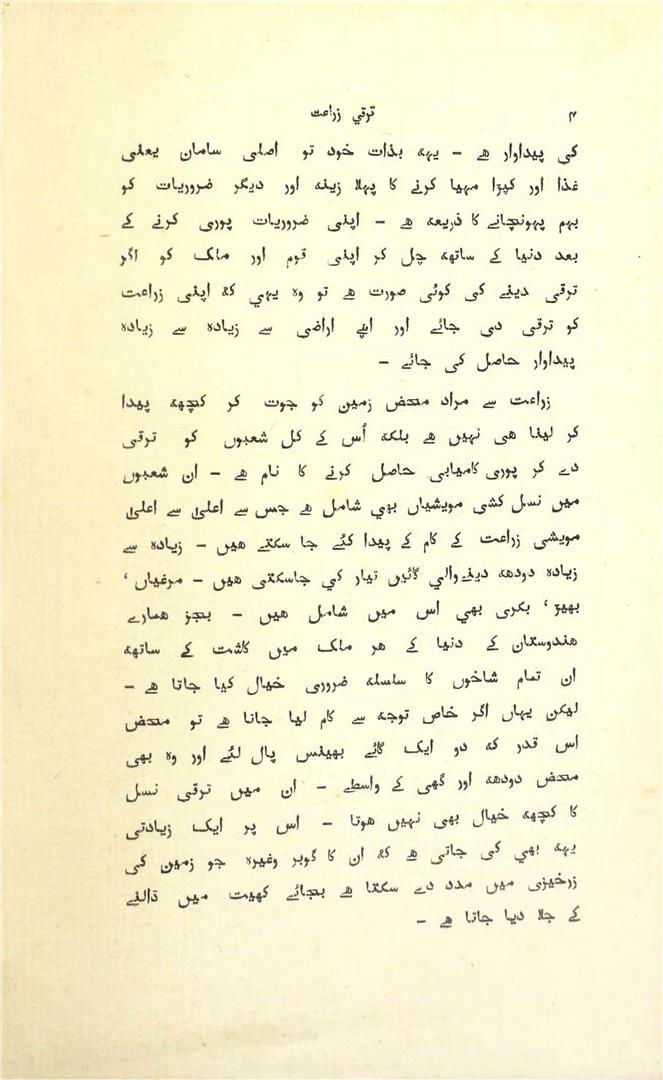 ۴ ترقي زراعت
کی پیداوار ہے - یہہ بذات خود تو اصلی سامان یعنی
غذا اور کپڑا مہیا کرنے کا پہلا زینہ اور دیگر ضروریات کو
بہم پہونچانے کا ذریعہ ہے - اپنی ضروریات پوری کرنے کے
بعد دنیا کے ساتھہ چل کر اپنی قوم اور ملک کو اگر
ترقی دینے کی کوئی صورت ہے تو وہ یہي کہ اپنی زراعت
کو ترقی دی جائے اور اپنے اراضی سے زیادہ سے زیادہ
پیداوار حاصل کی جائے -
زراعت سے مراد محض زمین کو جوت کر کچھہ پیدا
کر لینا ہی نہیں ہے بلکہ اُس کے کل شعبوں کو ترقی
دے کر پوری کامیابی حاصل کرنے کا نام ہے - ان شعبوں
میں نسل کشی مویشیاں بھي شامل ہے جس سے اعلیٰ سے اعلیٰ
مویشی زراعت کے کام کے پیدا کئے جا سکتے ہیں - زیادہ سے
زیادہ دودھہ دینےوالي گائیں تیار کي جاسکتی ہیں - مرغیاں ‘
بھیڑ ‘ بکری بھي اس میں شامل ہیں - بجز ہمارے
ہندوستان کے دنیا کے ہر ملک میں کاشت کے ساتھہ
ان تمام شاخوں کا سلسلہ ضروری خیال کیا جاتا ہے -
لیکن یہاں اگر خاص توجہ سے کام لیا جاتا ہے تو محض
اس قدر کہ دو ایک گائے بھینس پال لئے اور وہ بھی
محض دودھہ اور گھی کے واسطے - ان میں ترقی نسل
کا کچھہ خیال بھی نہیں ہوتا - اس پر ایک زیادتی
یہہ بھي کی جاتی ہے کہ ان کا گوبر وغیرہ جو زمین کی
زرخیزی میں مدد دے سکتا ہے بجائے کھیت میں ڈالنے
کے جلا دیا جاتا ہے -